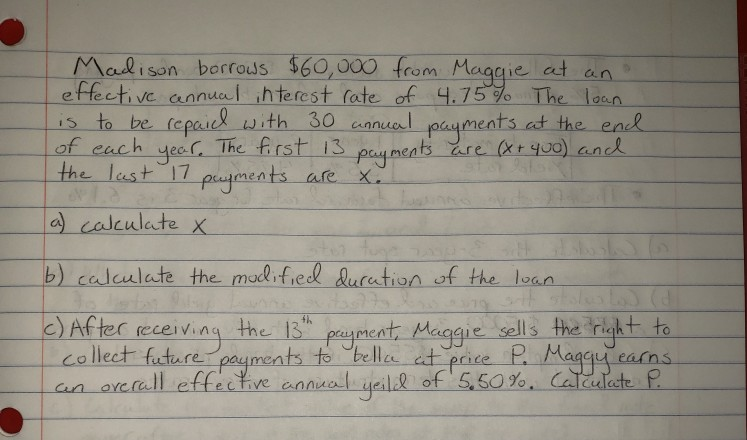 Madison borrows $60,000 from Maggie at an
effective annual interest rate of 4.75% The loan
is to be repaid with 30 annual payments at the end
of each year. The first 13 payments are (x+400) and
the last 17 payments are x.
a) calculate x
b) calculate the modified duration of the loan
c) After receiving the 13th payment, Maggie sells the right to
collect future payments to bella at price P. Maggy earns
an overall effective annual yeild of 5.50%. Calculate P.